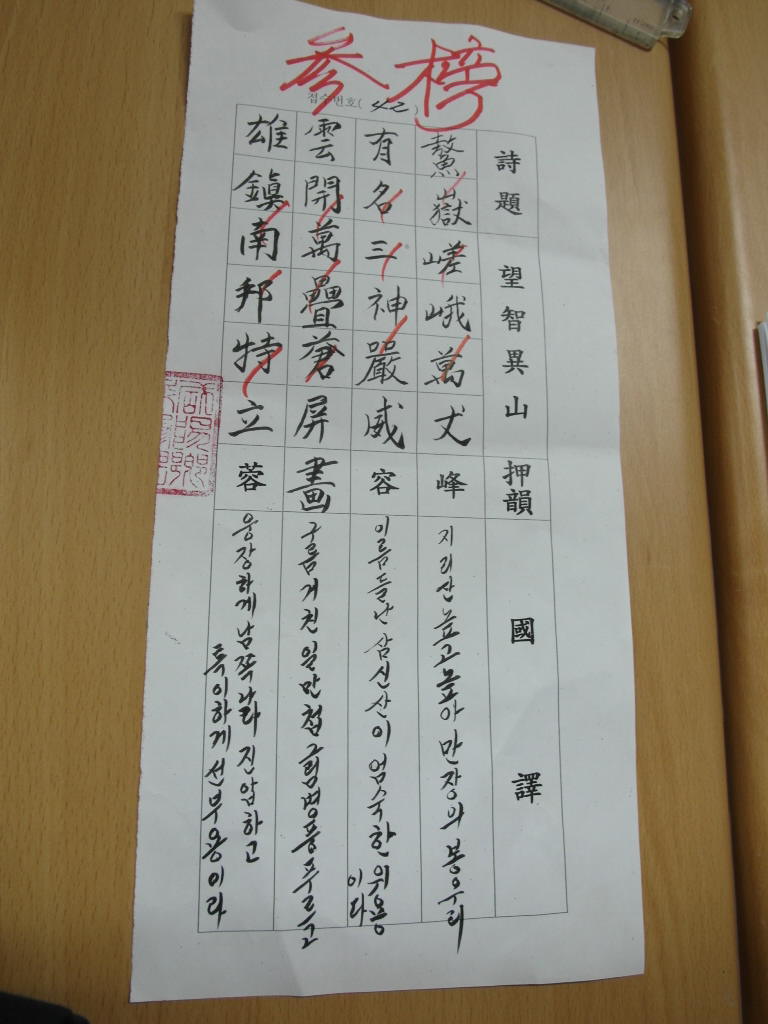 參榜
접수번호( 42 )
詩題 望智異山 押韻 國譯
鰲嶽嵯峨萬丈峰
지리산 높고 높아 만장의 봉우리
有名三神嚴威容
이름들난 삼신산이 엄숙한 위용
이다
雲開萬疊蒼屛畵
구름 거친 일만첩 그림병풍 푸르고
雄鎭南邦特立蓉
웅장하게 남쪽나라 진압하고
특이하게 선 부용이라